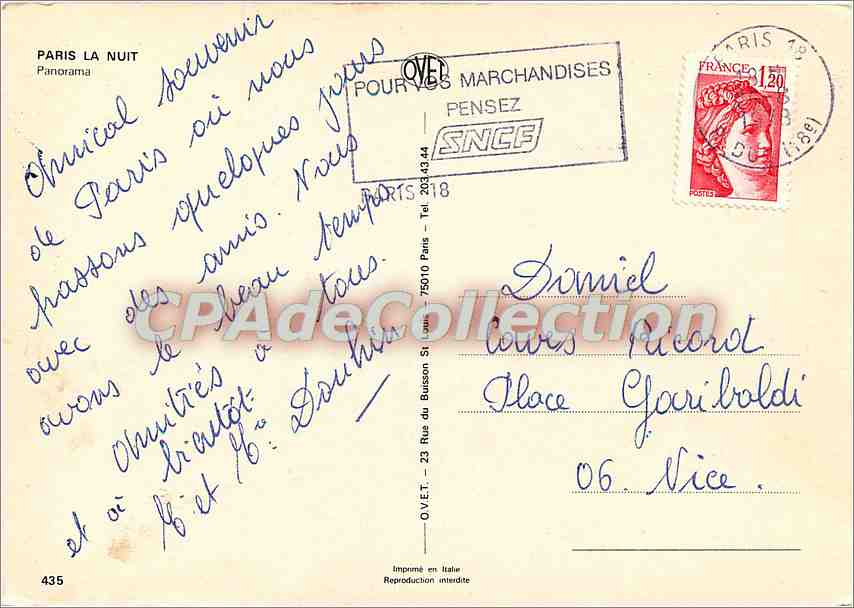 PARIS LA NUIT
Panorama
Amical souvenir
de Paris où nous
passons quelques jours
avec des amis. Nous
avons le beau temps
Amitiés à tous.
et à bientôt.
OVET
POUR VOS MARCHANDISES
PENSEZ
SNCF
PARIS 18
PARIS 18
FRANCE
1,20
POSTES
(18e)
O.V.E.T. - 23 Rue du Buisson St Louis - 75010 Paris - Tel. 203.43.44
Daniel
Caves Ricord
Place Garibaldi
06. Nice.
CPAdeCollection
435
Imprimé en Italie
Reproduction interdite